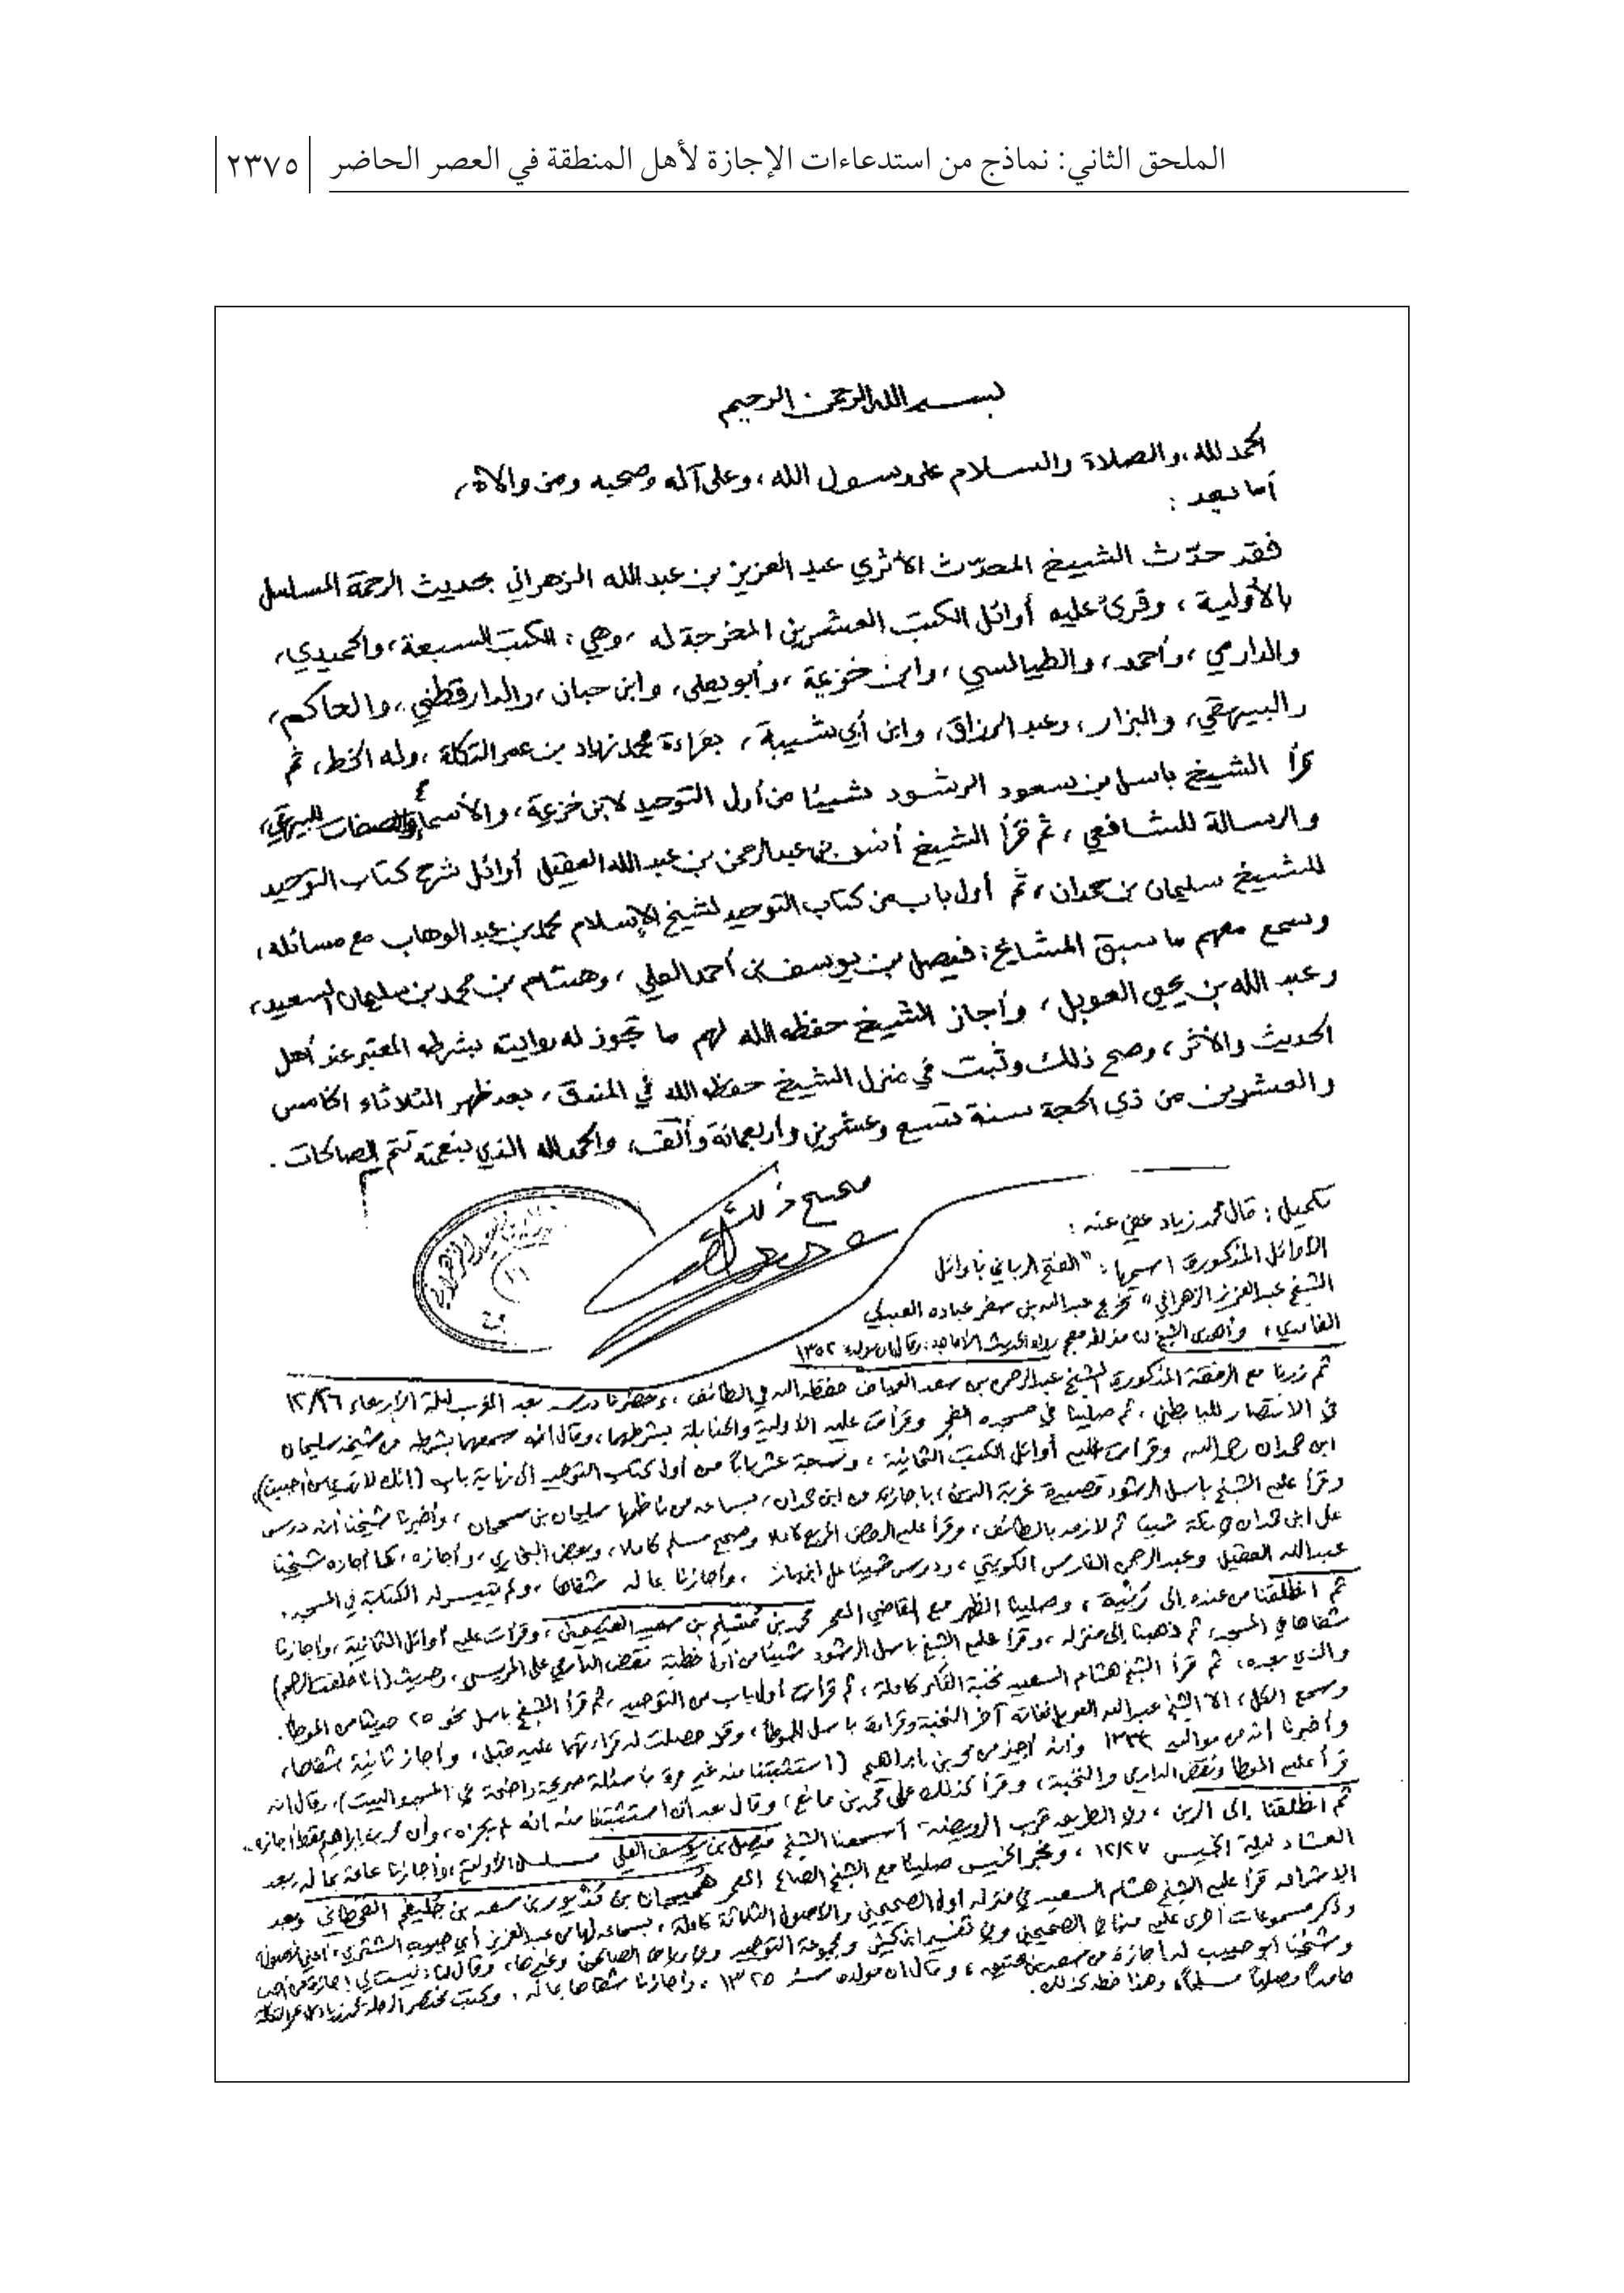 الملحق الثاني: نماذج من استدعاءات الإجازة لأهل المنطقة في العصر الحاضر ٢٣٧٥
بسم الله الرحمن الرحيم
الحمد لله، والصلاة والسلام على رسول الله، وعلى آله وصحبه ومن والاه،
أما بعد:
فقد حدّث الشيخ المحدّث الأثري عبد العزيز بن عبد الله الزهراني بحديث الرحمة المسلسل
بالأولية، وقرئ عليه أوائل الكتب العشرين المخرجة له، وهي: الكتب السبعة، والحميدي،
والدارمي، وأحمد، والطيالسي، وابن خزيمة، وأبو يعلى، وابن حبان، والدارقطني، والحاكم،
والبيهقي، والبزار، وعبد الرزاق، وابن أبي شيبة، بقراءة محمد زياد بن عمر التكلة، وله الخط، ثم
قرأ الشيخ باسل بن سعود الرشود شيئا من أول التوحيد لابن خزيمة، والأسماء والصفات للبيهقي،
والرسالة للشافعي، ثم قرأ الشيخ أنس بن عبد الرحمن بن عبد الله العقيل أوائل شرح كتاب التوحيد
للشيخ سليمان بن حمدان، ثم أول باب من كتاب التوحيد لشيخ الإسلام محمد بن عبد الوهاب مع مسائله،
وسمع معهم ما سبق المشايخ: فيصل بن يوسف بن أحمد العلي، وهشام بن محمد بن سليمان السعيد،
وعبد الله بن يحيى العوبل، وأجاز الشيخ حفظه الله لهم ما تجوز له روايته بشرطه المعتبر عند أهل
الحديث والأثر، وصح ذلك وثبت في منزل الشيخ حفظه الله في المندق، بعد ظهر الثلاثاء الخامس
والعشرين من ذي الحجة سنة تسع وعشرين وأربعمائة وألف، والحمد لله الذي بنعمته تتم الصالحات.
صحيح ذلك
تكميل: قال محمد زياد عفي عنه:
الأوائل المذكورة اسمها: "الفتح الرباني بأوائل
الشيخ عبد العزيز الزهراني" تخريج عبد الله بن سفر عباده العبدلي
الغامدي، وأهدى الشيخ ١٣٥٢
ثم زرنا مع الرفقة المذكورة الشيخ عبد الرحمن بن سعد العياف حفظه الله في الطائف، وحضرنا درسه بعد المغرب ليلة الأربعاء ١٢/٢٦
في الانتصار للبابطين، ثم صلينا في مسجده الفجر وقرأت عليه الأولية والحنابلة بشرطهما، وقال انه سمعهما بشرطه من شيخه سليمان
ابن حمدان رحمه الله وقرأت عليه أوائل الكتب الثمانية، وسبعة عشر بابا من أول كتاب التوحيد إلى نهاية باب (إنك لا تهدي من أحببت)،
وقرأ عليه الشيخ باسل الرشود قصيدة غربة الدين، بإجازته من ابن حمدان، بسماعه من ناظمها سليمان بن سحمان، وأخبرنا شيخنا أنه درس
على ابن حمدان في مكة شيئا ثم لازمه بالطائف، وقرأ عليه الروض المربع كاملا وصحيح مسلم كاملا، وبعض البخاري، وأجازه، كما أجازه شيخنا
عبد الله العقيل وعبد الرحمن الفارس الكويتي، ودرس شيئا على ابن باز، وأجازنا بما له شفاها، ولم يتيسر له الكتابة في المسجد.
ثم انطلقنا من عنده إلى رَنْيَة، وصلينا الظهر مع القاضي المعمر محمد بن مسعود، وقرأت عليه أوائل الثمانية، وأجازنا
شفاها في المسجد، ثم ذهبنا إلى منزله، وقرأ عليه الشيخ باسل الرشود شيئا من أول خطبة نقض الدارمي على المريسي، وحديث
والذي بعده، ثم قرأ الشيخ هشام السعيد نخبة الفكر كاملة، ثم قرأت أول باب من التوحيد، ثم قرأ الشيخ باسل نحو ٢٥ حديثا من الموطأ.
وسمع الكل، إلا الشيخ عبد الله العوبل ففاته آخر النخبة وقراءة باسل للموطأ، وقد حصلت له قراءتهما عليه قبل، وأجاز ثانية شفاها،
وأخبرنا أنه من مواليد وأنه أجيز من محمد بن إبراهيم (استثبتنا منه غير مرة بأسئلة صريحة واضحة في المسجد والبيت)، وقال إنه
قرأ عليه الموطأ ونقض الدارمي والنخبة، وقرأ كذلك على محمد بن مانع، وقال بعد أن استثبتنا منه إنه لم يجزه، وأن محمد بن إبراهيم فقط أجازه.
ثم انطلقنا إلى الرين، وفي الطريق قرب الرويضة أسمعنا الشيخ فيصل بن يوسف العلي مسلسل الأولية، وأجازنا عامة بما له بعد
العشاء ليلة الخميس ١٢/٢٧، وفجر الخميس صلينا مع الشيخ الصالح المعمر بن سعد بن القحطاني وبعد
الإشراق قرأ عليه الشيخ هشام السعيد في منزله أول الصحيحين والأصول الثلاثة كاملة، بسماعه لها من عبد العزيز أبي حبيب الشثري،
وذكر مسموعات أخرى عليه منها في الصحيحين وفي تفسير ابن كثير ومجموعة التوحيد وفي رياض الصالحين وغيرها، وقال لنا: ليست لي إجازة
وشيخنا أبو حبيب له إجازة من سعد بن عتيق، وقال إن مولده سنة ١٣٢٥، وأجازنا شفاها بما له، وكتب مختصر الرحلة محمد زياد بن عمر التكلة
حامدا مصليا مسلما، وهذا خطه كذلك.